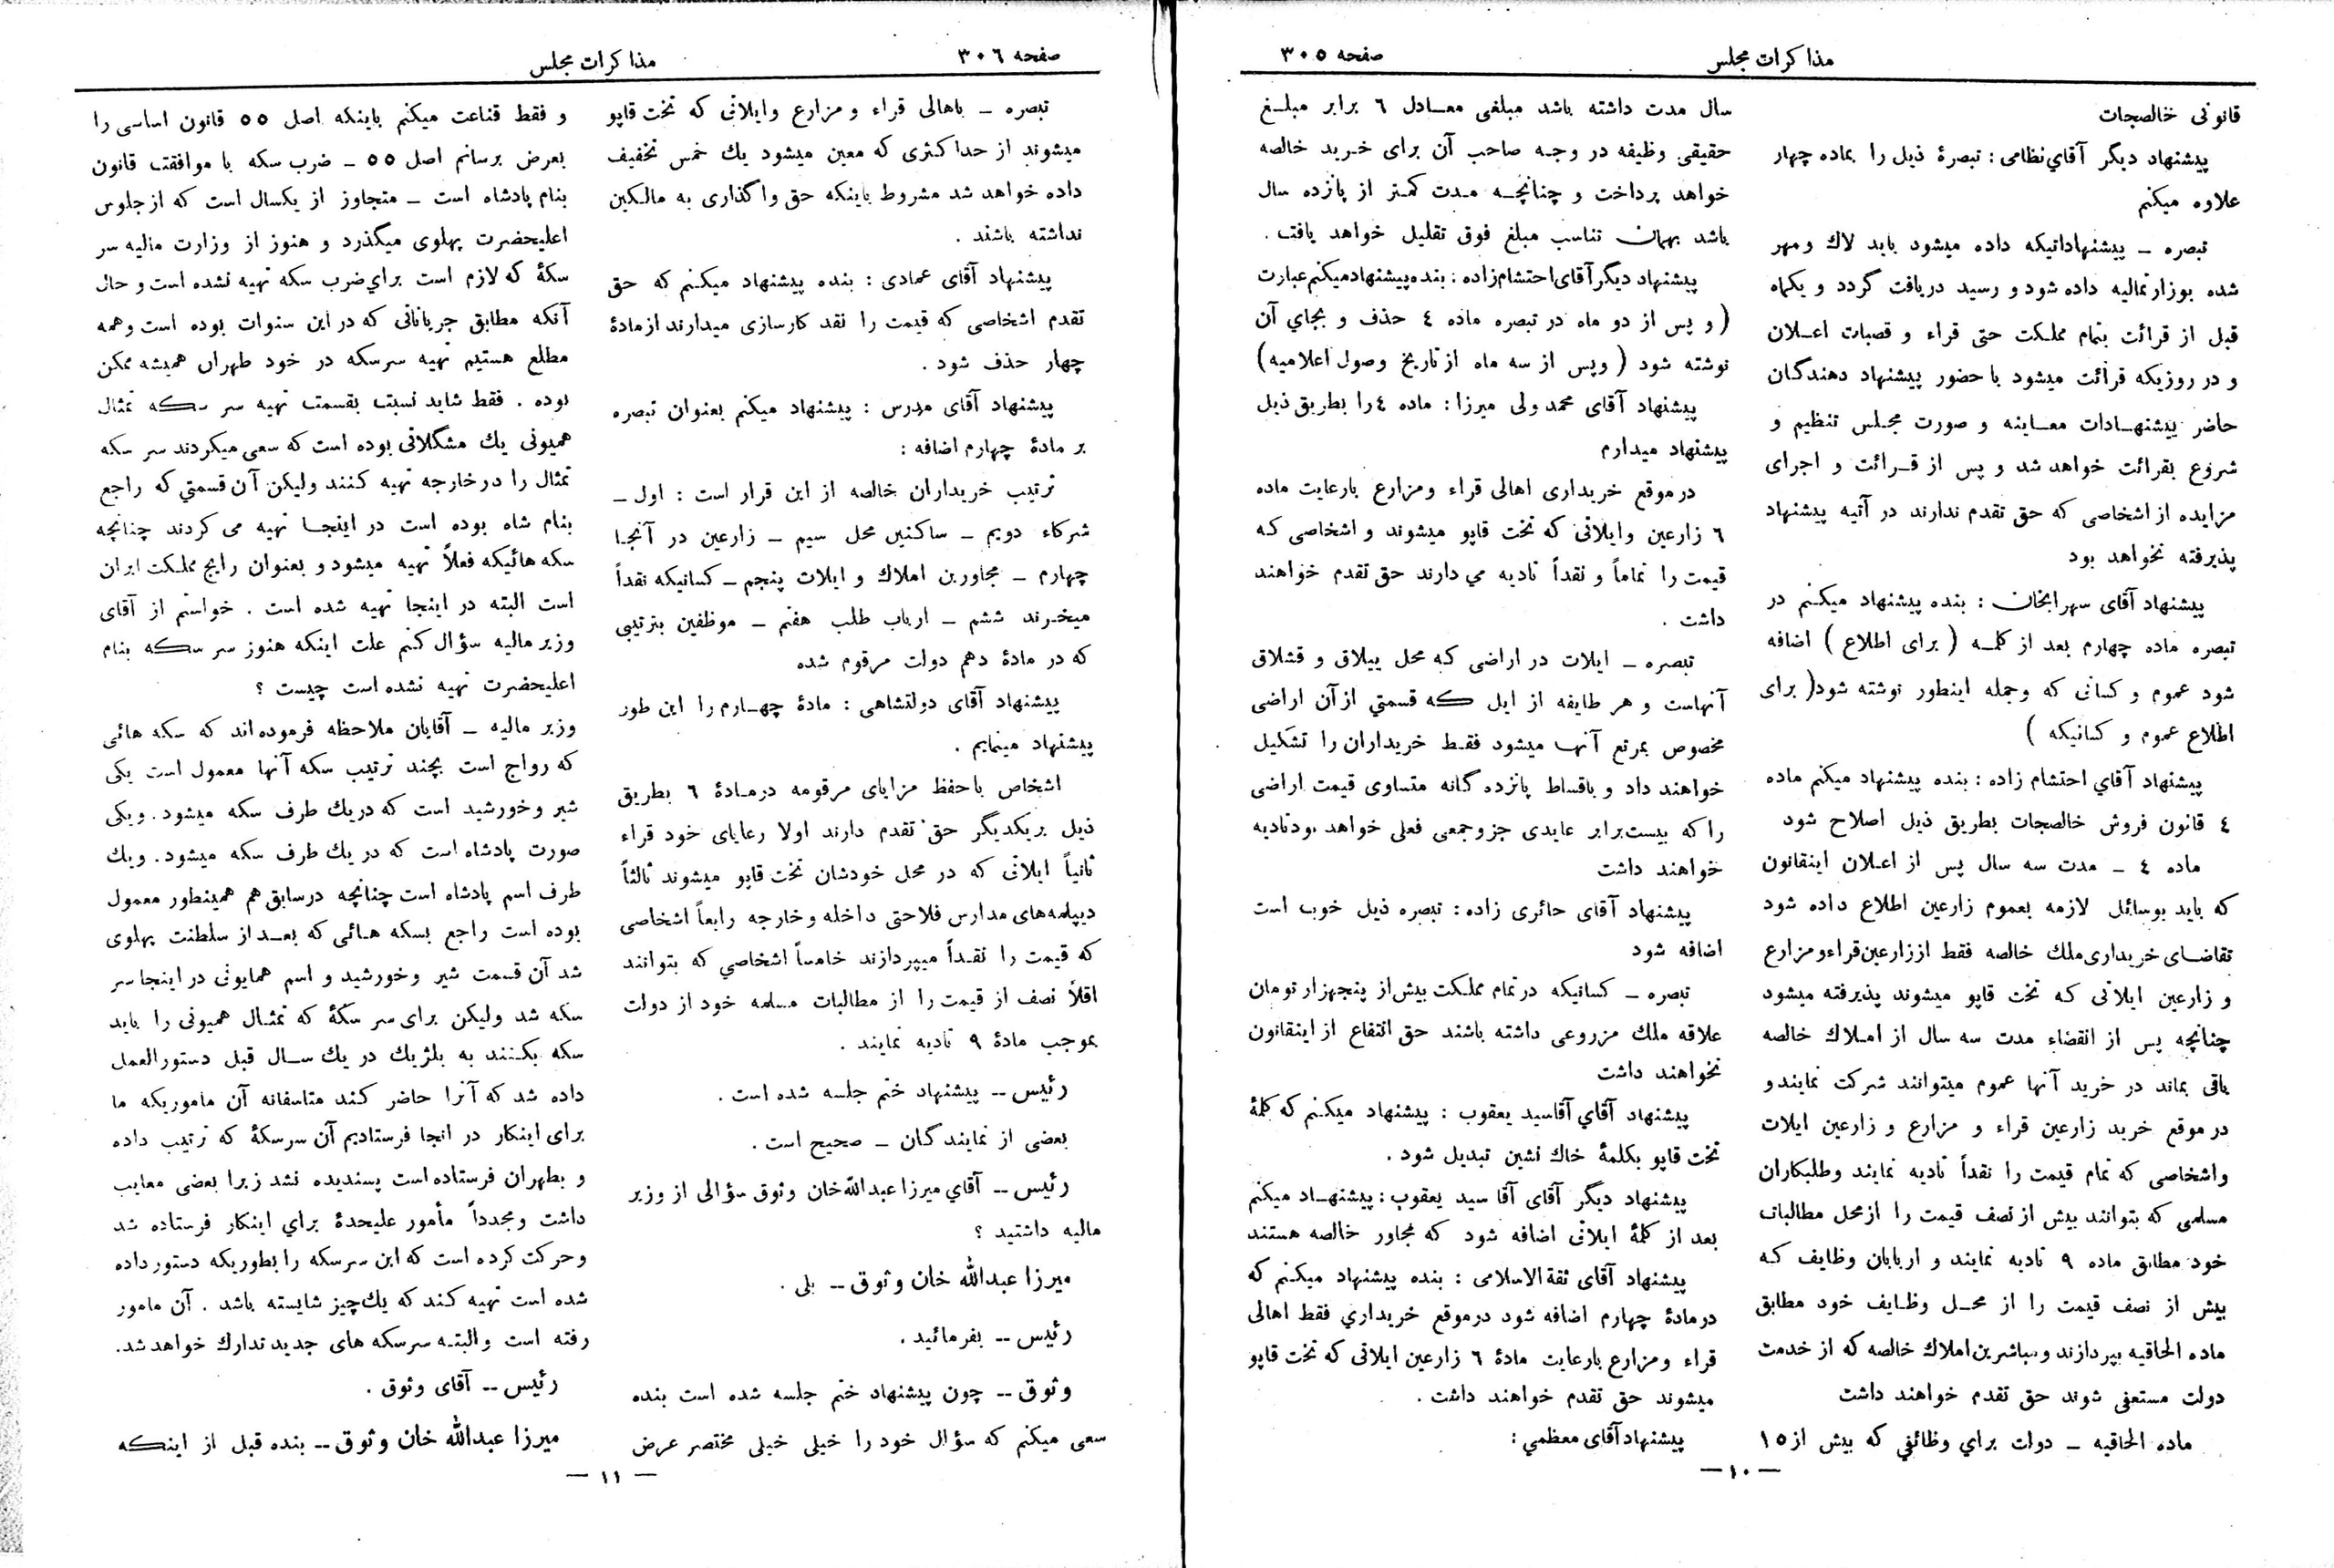 مذاکرات مجلس
صفحه ۳۰۵
قانونی خالصجات
پیشنهاد دیگر آقای نظامی : تبصرهٔ ذیل را بماده چهار
علاوه میکنم
تبصره ـ پیشنهاداتیکه داده میشود باید لاك و مهر
شده بوزارتمالیه داده شود و رسید دریافت گردد و یکماه
قبل از قرائت بتمام مملکت حتی قراء و قصبات اعلان
و در روزیکه قرائت میشود با حضور پیشنهاد دهندگان
حاضر پیشنهادات معاینه و صورت مجلس تنظیم و
شروع بقرائت خواهد شد و پس از قرائت و اجرای
مزایده از اشخاصی که حق تقدم ندارند در آتیه پیشنهاد
پذیرفته نخواهد بود
پیشنهاد آقای سهرابخان : بنده پیشنهاد میکنم در
تبصره ماده چهارم بعد از کلمه ( برای اطلاع ) اضافه
شود عموم و کسانی که وجمله اینطور نوشته شود( برای
اطلاع عموم و کسانیکه )
پیشنهاد آقاي احتشام زاده : بنده پیشنهاد میکنم ماده
٤ قانون فروش خالصجات بطریق ذیل اصلاح شود
ماده ٤ ـ مدت سه سال پس از اعلان اینقانون
که باید بوسائل لازمه بعموم زارعین اطلاع داده شود
تقاضای خریداری ملك خالصه فقط از زارعین قراء و مزارع
و زارعین ایلاتی که تخت قاپو میشوند پذیرفته میشود
چنانچه پس از انقضاء مدت سه سال از املاك خالصه
باقی بماند در خرید آنها عموم میتوانند شرکت نمایند و
در موقع خرید زارعین قراء و مزارع و زارعین ایلات
واشخاصی که تمام قیمت را نقداً تادیه نمایند وطلبکاران
مسلمی که بتوانند بیش از نصف قیمت را از محل مطالبات
خود مطابق ماده ۹ تادیه نمایند و اربابان وظایف که
بیش از نصف قیمت را از محل وظایف خود مطابق
ماده الحاقیه بپردازند و مباشرین املاك خالصه که از خدمت
دولت مستعفی شوند حق تقدم خواهند داشت
ماده الحاقیه ـ دولت براي وظائفي که بیش از ۱٥
سال مدت داشته باشد مبلغی معادل ٦ برابر مبلغ
حقیقی وظیفه در وجه صاحب آن برای خرید خالصه
خواهد پرداخت و چنانچه مدت کمتر از پانزده سال
باشد بهمان تناسب مبلغ فوق تقلیل خواهد یافت .
پیشنهاد دیگر آقای احتشام زاده : بنده پیشنهاد میکنم عبارت
( و پس از دو ماه در تبصره ماده ٤ حذف و بجاي آن
نوشته شود ( و پس از سه ماه از تاریخ وصول اعلامیه)
پیشنهاد آقای محمد ولی میرزا : ماده ٤ را بطریق ذیل
پیشنهاد میدارم
در موقع خریداری اهالی قراء ومزارع بارعایت ماده
٦ زارعین وایلاتی که تخت قاپو میشوند و اشخاصی که
قیمت را تماماً و نقداً تادیه می دارند حق تقدم خواهند
داشت .
تبصره ـ ایلات در اراضی که محل ییلاق و قشلاق
آنهاست و هر طایفه از ایل که قسمتي از آن اراضی
مخصوص بمرتع آنها میشود فقط خریداران را تشکیل
خواهند داد و باقساط پانزده گانه متساوی قیمت اراضی
را که بیست برابر عایدی جزو جمعی فعلی خواهد بود تادیه
خواهند داشت
پیشنهاد آقای حائری زاده : تبصره ذیل خوب است
اضافه شود
تبصره ـ کسانیکه در تمام مملکت بیش از پنجهزار تومان
علاقه ملك مزروعی داشته باشند حق انتفاع از اینقانون
نخواهند داشت
پیشنهاد آقاي آقاسید یعقوب : پیشنهاد میکنم که کلمهٔ
تخت قاپو بکلمهٔ خاك نشین تبدیل شود .
پیشنهاد دیگر آقای آقا سید یعقوب : پیشنهاد میکنم
بعد از کلمهٔ ایلاتی اضافه شود که مجاور خالصه هستند
پیشنهاد آقای ثقة الاسلامی : بنده پیشنهاد میکنم که
در مادهٔ چهارم اضافه شود در موقع خریداري فقط اهالی
قراء ومزارع بارعایت مادهٔ ٦ زارعین ایلاتی که تخت قاپو
میشوند حق تقدم خواهند داشت .
پیشنهاد آقای معظمي :
— ۱۰ —
صفحه ۳۰٦
مذاکرات مجلس
تبصره ـ باهالی قراء و مزارع وایلاتی که تخت قاپو
میشوند از حداکثری که معین میشود یك خمس تخفیف
داده خواهد شد مشروط باینکه حق واگذاری به مالکین
نداشته باشند .
پیشنهاد آقای عمادی : بنده پیشنهاد میکنم که حق
تقدم اشخاصی که قیمت را نقد کارسازی میدارند از مادهٔ
چهار حذف شود .
پیشنهاد آقای مدرس : پیشنهاد میکنم بعنوان تبصره
بر مادهٔ چهارم اضافه :
ترتیب خریداران خالصه از این قرار است : اول ـ
شرکاء دویم ـ ساکنین محل سیم ـ زارعین در آنجا
چهارم ـ مجاورین املاك و ایلات پنجم ـ کسانیکه نقداً
میخرند ششم ـ ارباب طلب هفتم ـ موظفین بترتیبی
که در مادهٔ دهم دولت مرقوم شده
پیشنهاد آقای دولتشاهی : مادهٔ چهارم را این طور
پیشنهاد مینمایم .
اشخاص با حفظ مزایای مرقومه در مادهٔ ٦ بطریق
ذیل بریکدیگر حق تقدم دارند اولا رعایای خود قراء
ثانیاً ایلاتی که در محل خودشان تخت قاپو میشوند ثالثاً
دیپلمه‌های مدارس فلاحتی داخله و خارجه رابعاً اشخاصی
که قیمت را نقداً میپردازند خامساً اشخاصي که بتوانند
اقلاً نصف از قیمت را از مطالبات مسلمه خود از دولت
بموجب مادهٔ ۹ تادیه نمایند .
رئیس ـ پیشنهاد ختم جلسه شده است .
بعضی از نمایندگان ـ صحیح است .
رئیس ـ آقاي میرزا عبدالله‌خان وثوق سؤالی از وزیر
مالیه داشتید ؟
میرزا عبدالله خان وثوق ـ بلی .
رئیس ـ بفرمائید .
وثوق ـ چون پیشنهاد ختم جلسه شده است بنده
سعی میکنم که سؤال خود را خیلی خیلی مختصر عرض
و فقط قناعت میکنم باینکه اصل ٥٥ قانون اساسی را
بعرض برسانم اصل ٥٥ ـ ضرب سکه با موافقت قانون
بنام پادشاه است ـ متجاوز از یکسال است که از جلوس
اعلیحضرت پهلوی میگذرد و هنوز از وزارت مالیه سر
سکهٔ که لازم است براي ضرب سکه تهیه نشده است و حال
آنکه مطابق جریاناتی که در این سنوات بوده است وهمه
مطلع هستیم تهیه سرسکه در خود طهران همیشه ممکن
بوده . فقط شاید نسبت بقسمت تهیه سر سکه تمثال
همیونی یك مشگلاتی بوده است که سعی میکردند سر سکه
تمثال را در خارجه تهیه کنند ولیکن آن قسمتي که راجع
بنام شاه بوده است در اینجا تهیه می کردند چنانچه
سکه هائیکه فعلاً تهیه میشود و بعنوان رایج مملکت ایران
است البته در اینجا تهیه شده است . خواستم از آقای
وزیر مالیه سؤال کنم علت اینکه هنوز سر سکه بنام
اعلیحضرت تهیه نشده است چیست ؟
وزیر مالیه ـ آقایان ملاحظه فرموده‌اند که سکه هائی
که رواج است بچند ترتیب سکه آنها معمول است یکی
شیر و خورشید است که در یك طرف سکه میشود . ویکی
صورت پادشاه است که در یك طرف سکه میشود . ویك
طرف اسم پادشاه است چنانچه در سابق هم همینطور معمول
بوده است راجع بسکه هائی که بعد از سلطنت پهلوی
شد آن قسمت شیر و خورشید و اسم همایونی در اینجا سر
سکه شد ولیکن برای سر سکهٔ که تمثال همیونی را باید
سکه بکنند به بلژیك در یك سال قبل دستورالعمل
داده شد که آنرا حاضر کنند متاسفانه آن ماموریکه ما
برای اینکار در انجا فرستادیم آن سرسکهٔ که ترتیب داده
و بطهران فرستاده است پسندیده نشد زیرا بعضی معایب
داشت ومجدداً مأمور علیحدهٔ براي اینکار فرستاده شد
و حرکت کرده است که این سرسکه را بطوریکه دستور داده
شده است تهیه کند که یك چیز شایسته باشد . آن مامور
رفته است والبته سرسکه های جدید تدارك خواهد شد.
رئیس ـ آقای وثوق .
میرزا عبدالله خان وثوق ـ بنده قبل از اینکه
— ۱۱ —